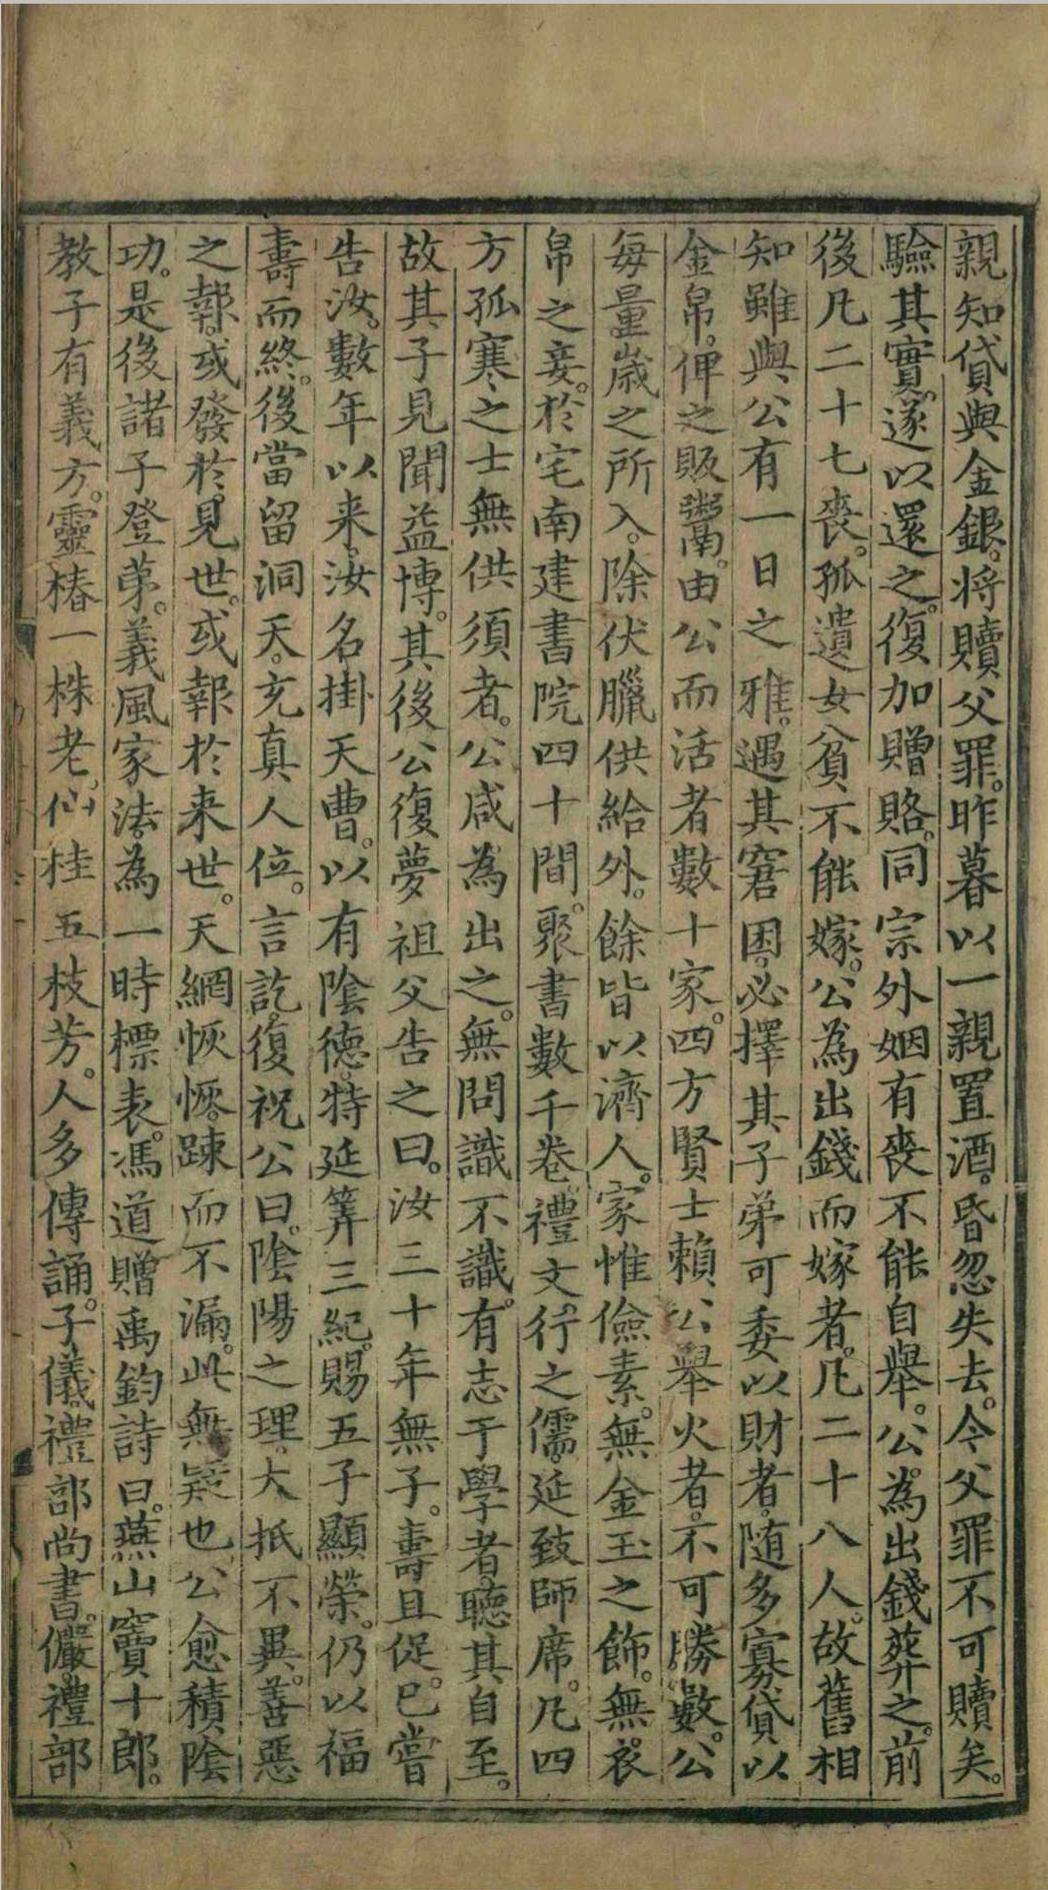 親知貸與金銀。將贖父罪。昨暮以一親置酒。昏忽失去。今父罪不可贖矣。
驗其實。遂以還之。復加贈賂。同宗外姻有喪不能自舉。公為出錢葬之。前
後凡二十七喪。孤遺女貧不能嫁。公為出錢而嫁者。凡二十八人。故舊相
知雖與公有一日之雅。遇其窘困。必擇其子弟可委以財者。随多寡貸以
金帛。俾之販鬻。由公而活者數十家。四方賢士賴公舉火者。不可勝數。公
每量歲之所入。除伏臘供給外。餘皆以濟人。家惟儉素。無金玉之飾。無衣
帛之妾。於宅南建書院四十間。聚書數千卷。禮文行之儒。延致師席。凡四
方孤寒之士無供須者。公咸為出之。無問識不識。有志于學者聽其自至。
故其子見聞益博。其後公復夢祖父告之曰。汝三十年無子。壽且促。已嘗
告汝。數年以来。汝名掛天曹。以有陰德。特延筭三紀。賜五子顯榮。仍以福
壽而終。後當留洞天。充真人位。言訖。復祝公曰。陰陽之理。大抵不異。善惡
之報。或發於見世。或報於来世。天網恢恢。踈而不漏。此無疑也。公愈積陰
功。是後諸子登苐。義風家法。為一時標表。馮道贈禹鈞詩曰。燕山竇十郎。
教子有義方。靈椿一株老。仙桂五枝芳。人多傳誦。子儀。禮部尚書。儼。禮部